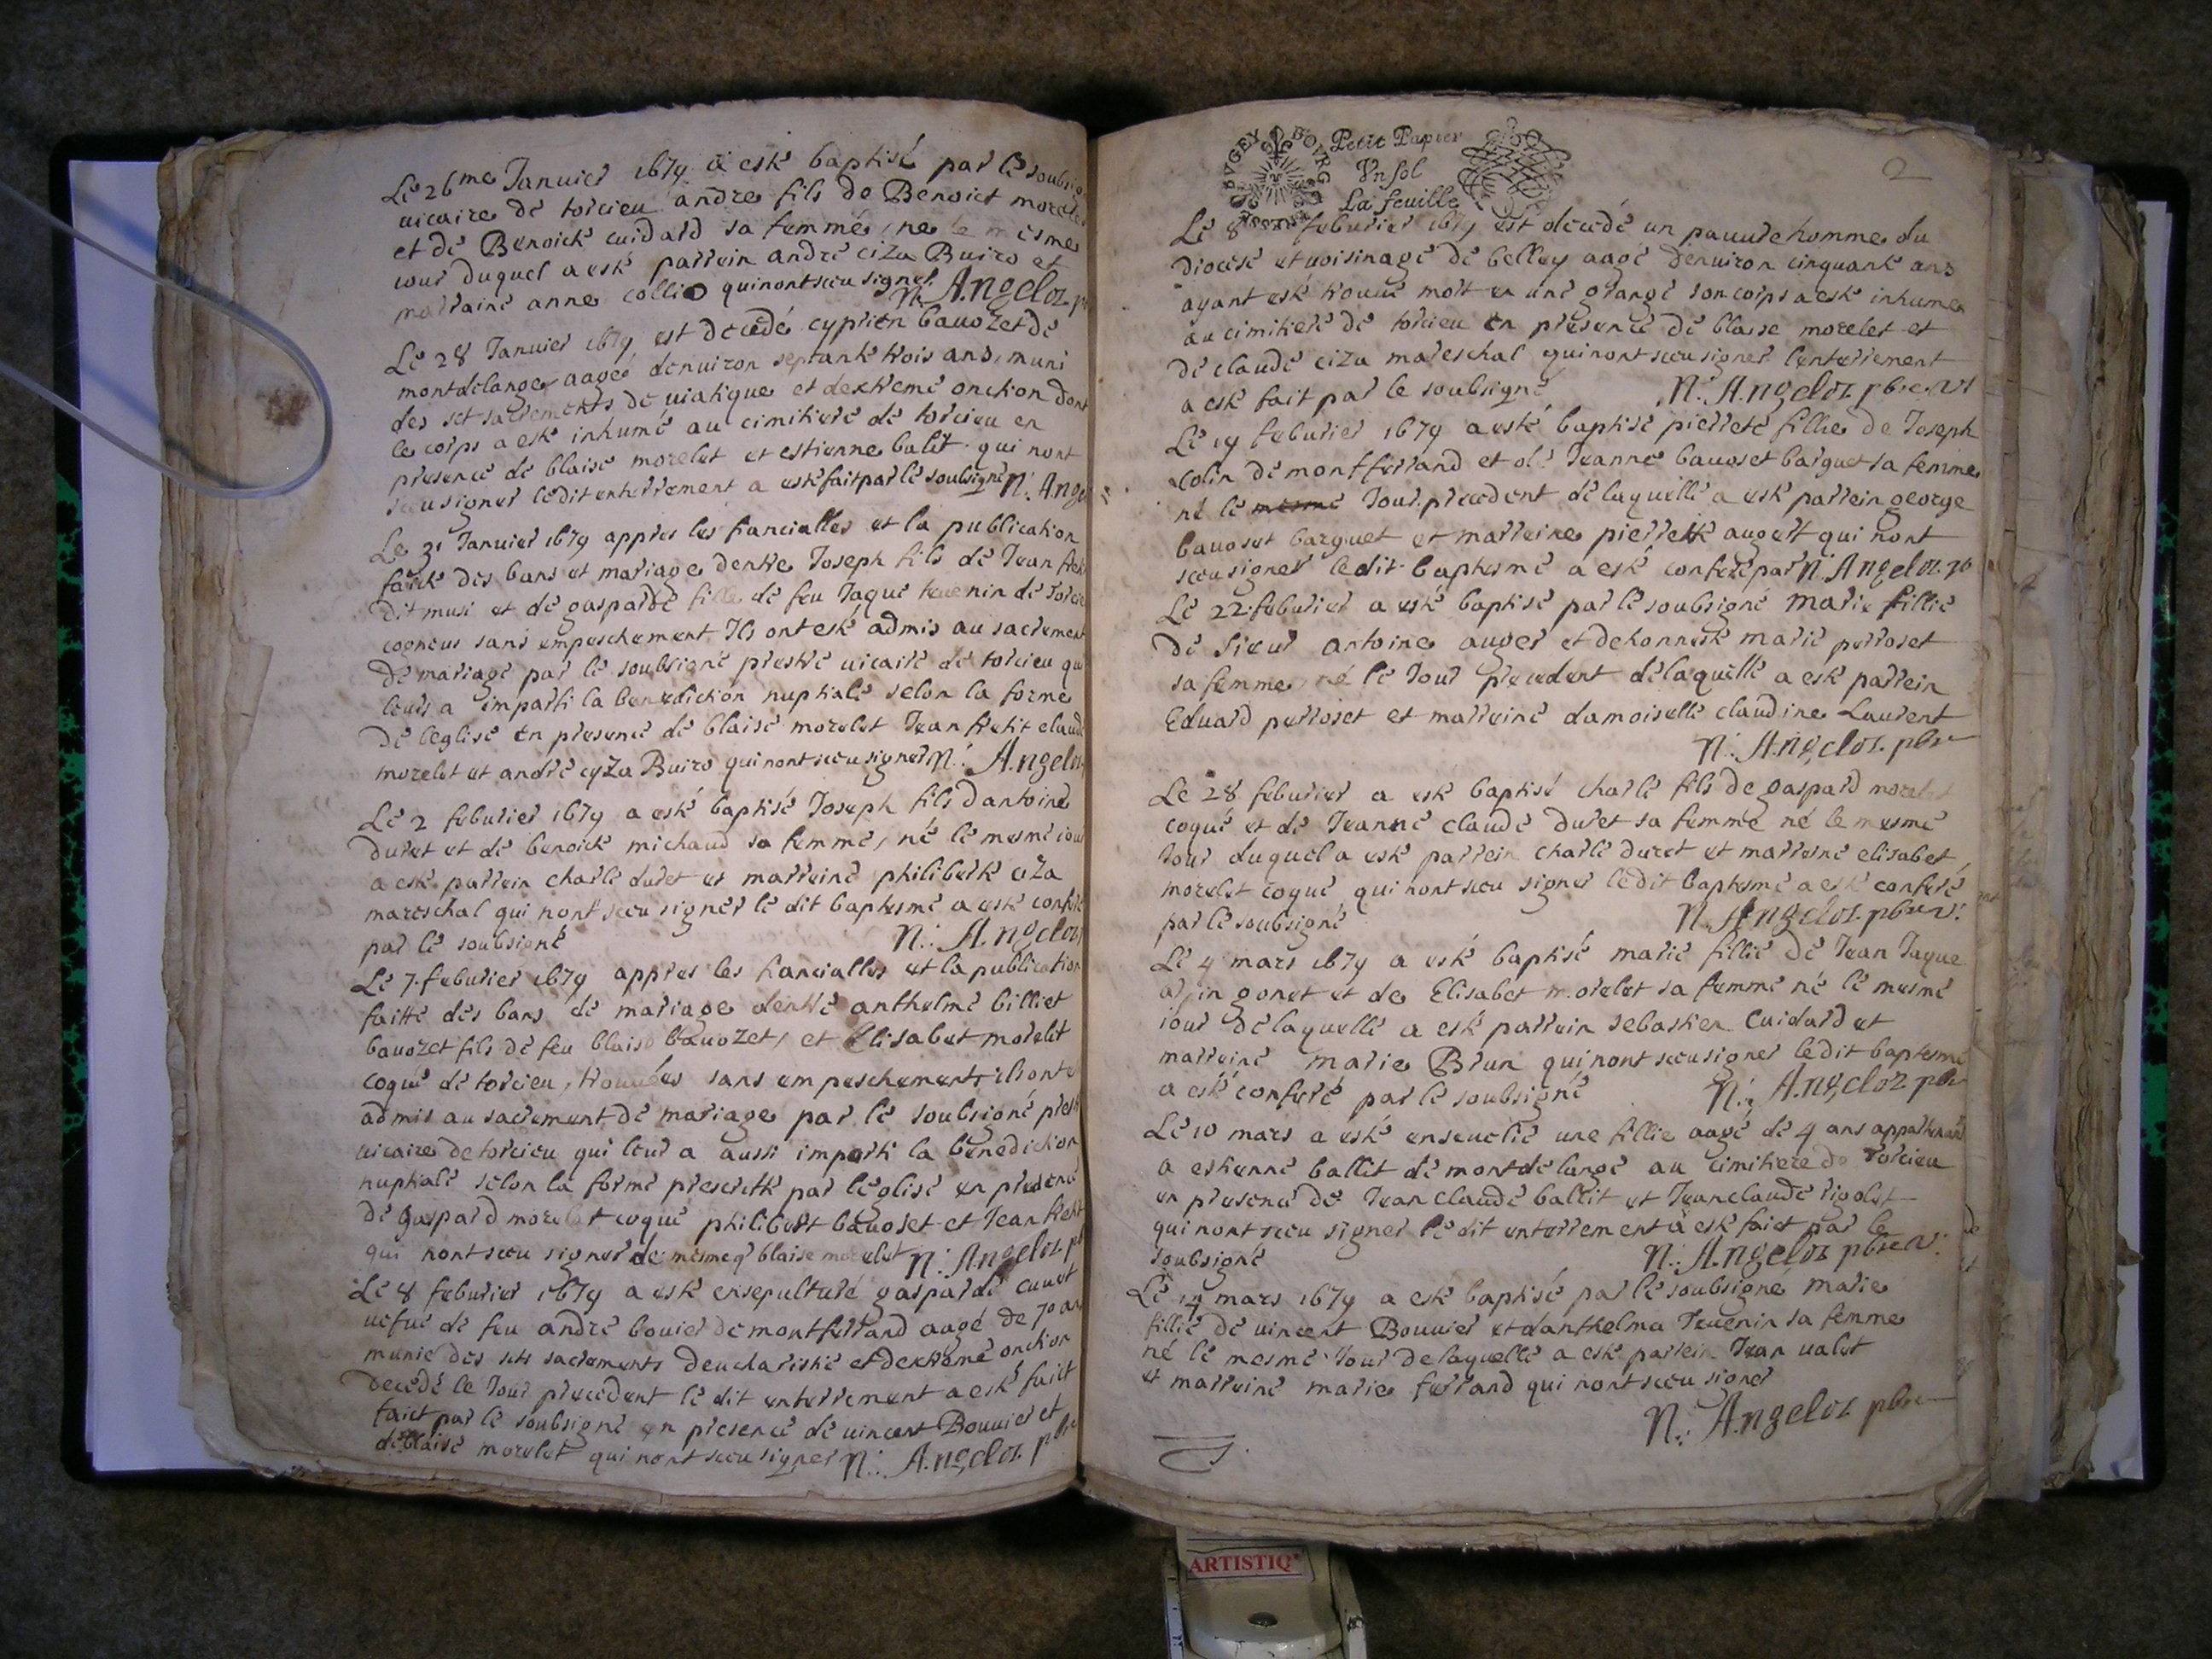 Le 26me Januier 1679 a esté baptisé par le soubsig
uicaire de torcieu andre fils de Benoict morele
et de Benoicte cuidard sa femme, ne le mesme
iour duquel a esté parrein andré ciza Buiro et
marraine anne collio qui nont sceu signer N. Angeloz p
Le 28 Januier 1679 est decedé cyprien bauozet de
montdelange aagé denuiron septante trois ans, muni
des sct sacrements de uiatique et dextreme onction dont
le corps a esté inhumé au cimitiere de torcieu en
presence de blaise morelet et estienne balit qui nont
sceu signer ledit enterrement a esté fait par le soubsigné N: Ange
Le 31 Januier 1679 appres les fiancialles et la publication
faitte des bans et mariage dentre Joseph fils de Jean
dit musi et de gasparde fille de feu Jaque teuenin de Torcie
cogneus sans empeschement Ils ont esté admis au sacrement
de mariage par le soubsigné prestre uicaire de torcieu qui
leurs a imparti la benediction nuptiale selon la forme
de leglise en presence de blaise morelet Jean claude
morelet et andre cyza Buiro qui nont sceu signer N: Angeloz
Le 2 feburier 1679 a esté baptisé Joseph fils dantoine
duret et de benoicte michaud sa femme, né le mesme iour
a esté parrein charle duret et marreine philiberte ciza
mareschal qui nont sceu signer le dit baptesme a esté conferé
par le soubsigné N: Angeloz
Le 7 feburier 1679 appres les fiancialles et la publication
faitte des bans de mariage dentre anthelme billiet
bauozet fils de feu blaise bauozet, et Elisabet morelet
coque de torcieu, trouuées sans empeschement ils ont e
admis au sacrement de mariage par le soubsigné prest
uicaire de torcieu qui leur a aussi imparti la benediction
nuptiale selon la forme prescritte par leglise en presence
de gaspard morelet coque philibert bauoset et Jean
qui nont sceu signer de mesme q blaise morelet N: Angeloz pb
Le 8 feburier 1679 a esté ensepulturé gasparde cuuet
uefue de feu andré bouier de montferrand aagé de 70 ans
munie des scts sacrements deucharistie et dextreme onction
decedé le Jour precedent le dit enterrement a esté faict
faict par le soubsigné en presence de uincent Bouuier et
de blaise morelet qui nont sceu signer N: Angeloz pbr
BVGEY BOVRG
Petit Papier
Vn sol
La feuille
2
Le 8 feburier 1679 est decedé un pauure homme du
diocese et uoisinage de belley aagé denuiron cinquante ans
ayant esté trouué mort en une grange son corps a esté inhume
au cimitiere de torcieu en presence de blaise morelet et
de claude ciza mareschal qui nont sceu signer lenterrement
a esté fait par le soubsigné N: Angeloz pbre
Le 19 feburier 1679 a esté baptisé pierrete fillie de Joseph
colin de montferrand et de Jeanne bauoset barguet sa femme
né le mesme Jour precedent de laquelle a esté parrein george
bauoset barguet et marreine pierrette augert qui nont
sceu signer ledit baptesme a esté conferé par N Angeloz
Le 22 feburier a esté baptisé par le soubsigné Marie fillie
de Sieur antoine auger et dehonneste marie perroset
sa femme né le Jour precedent de laquelle a esté parrein
Eduard perroset et marreine damoiselle claudine Laurent
N: Angeloz pbr
Le 28 feburier a esté baptisé charle fils de gaspard morelet
coque et de Jeanne claude duret sa femme né le mesme
Jour duquel a esté parrein charle duret et marreine elisabet
morelet coque qui nont sceu signer ledit baptesme a esté conferé
par le soubsigné N. Angeloz pbre v:
Le 4 mars 1679 a esté baptisé marie fillie de Jean Jaque
gonet et de Elisabet morelet sa femme né le mesme
iour de laquelle a esté parrein sebastien Cuidard et
marreine marie Brun qui nont sceu signer ledit baptesme
a esté conferé par le soubsigné N: Angeloz pbr
Le 10 mars a esté enseuelie une fillie aagé de 4 ans appartenant
a estienne ballit de montdelange au cimitiere de Torcieu
en presence de Jean claude ballit et Jean claude rigolet
qui nont sceu signer le dit enterrement a esté faict par le
soubsigné N: Angeloz pbre v:
Le 14 mars 1679 a esté baptisé par le soubsigné marie
fillie de uincent Bouuier et danthelma Teuenin sa femme
né le mesme Jour de laquelle a esté parrein Jean ualet
et marreine marie ferrand qui nont sceu signer
N: Angeloz pbre
ARTISTIQ'